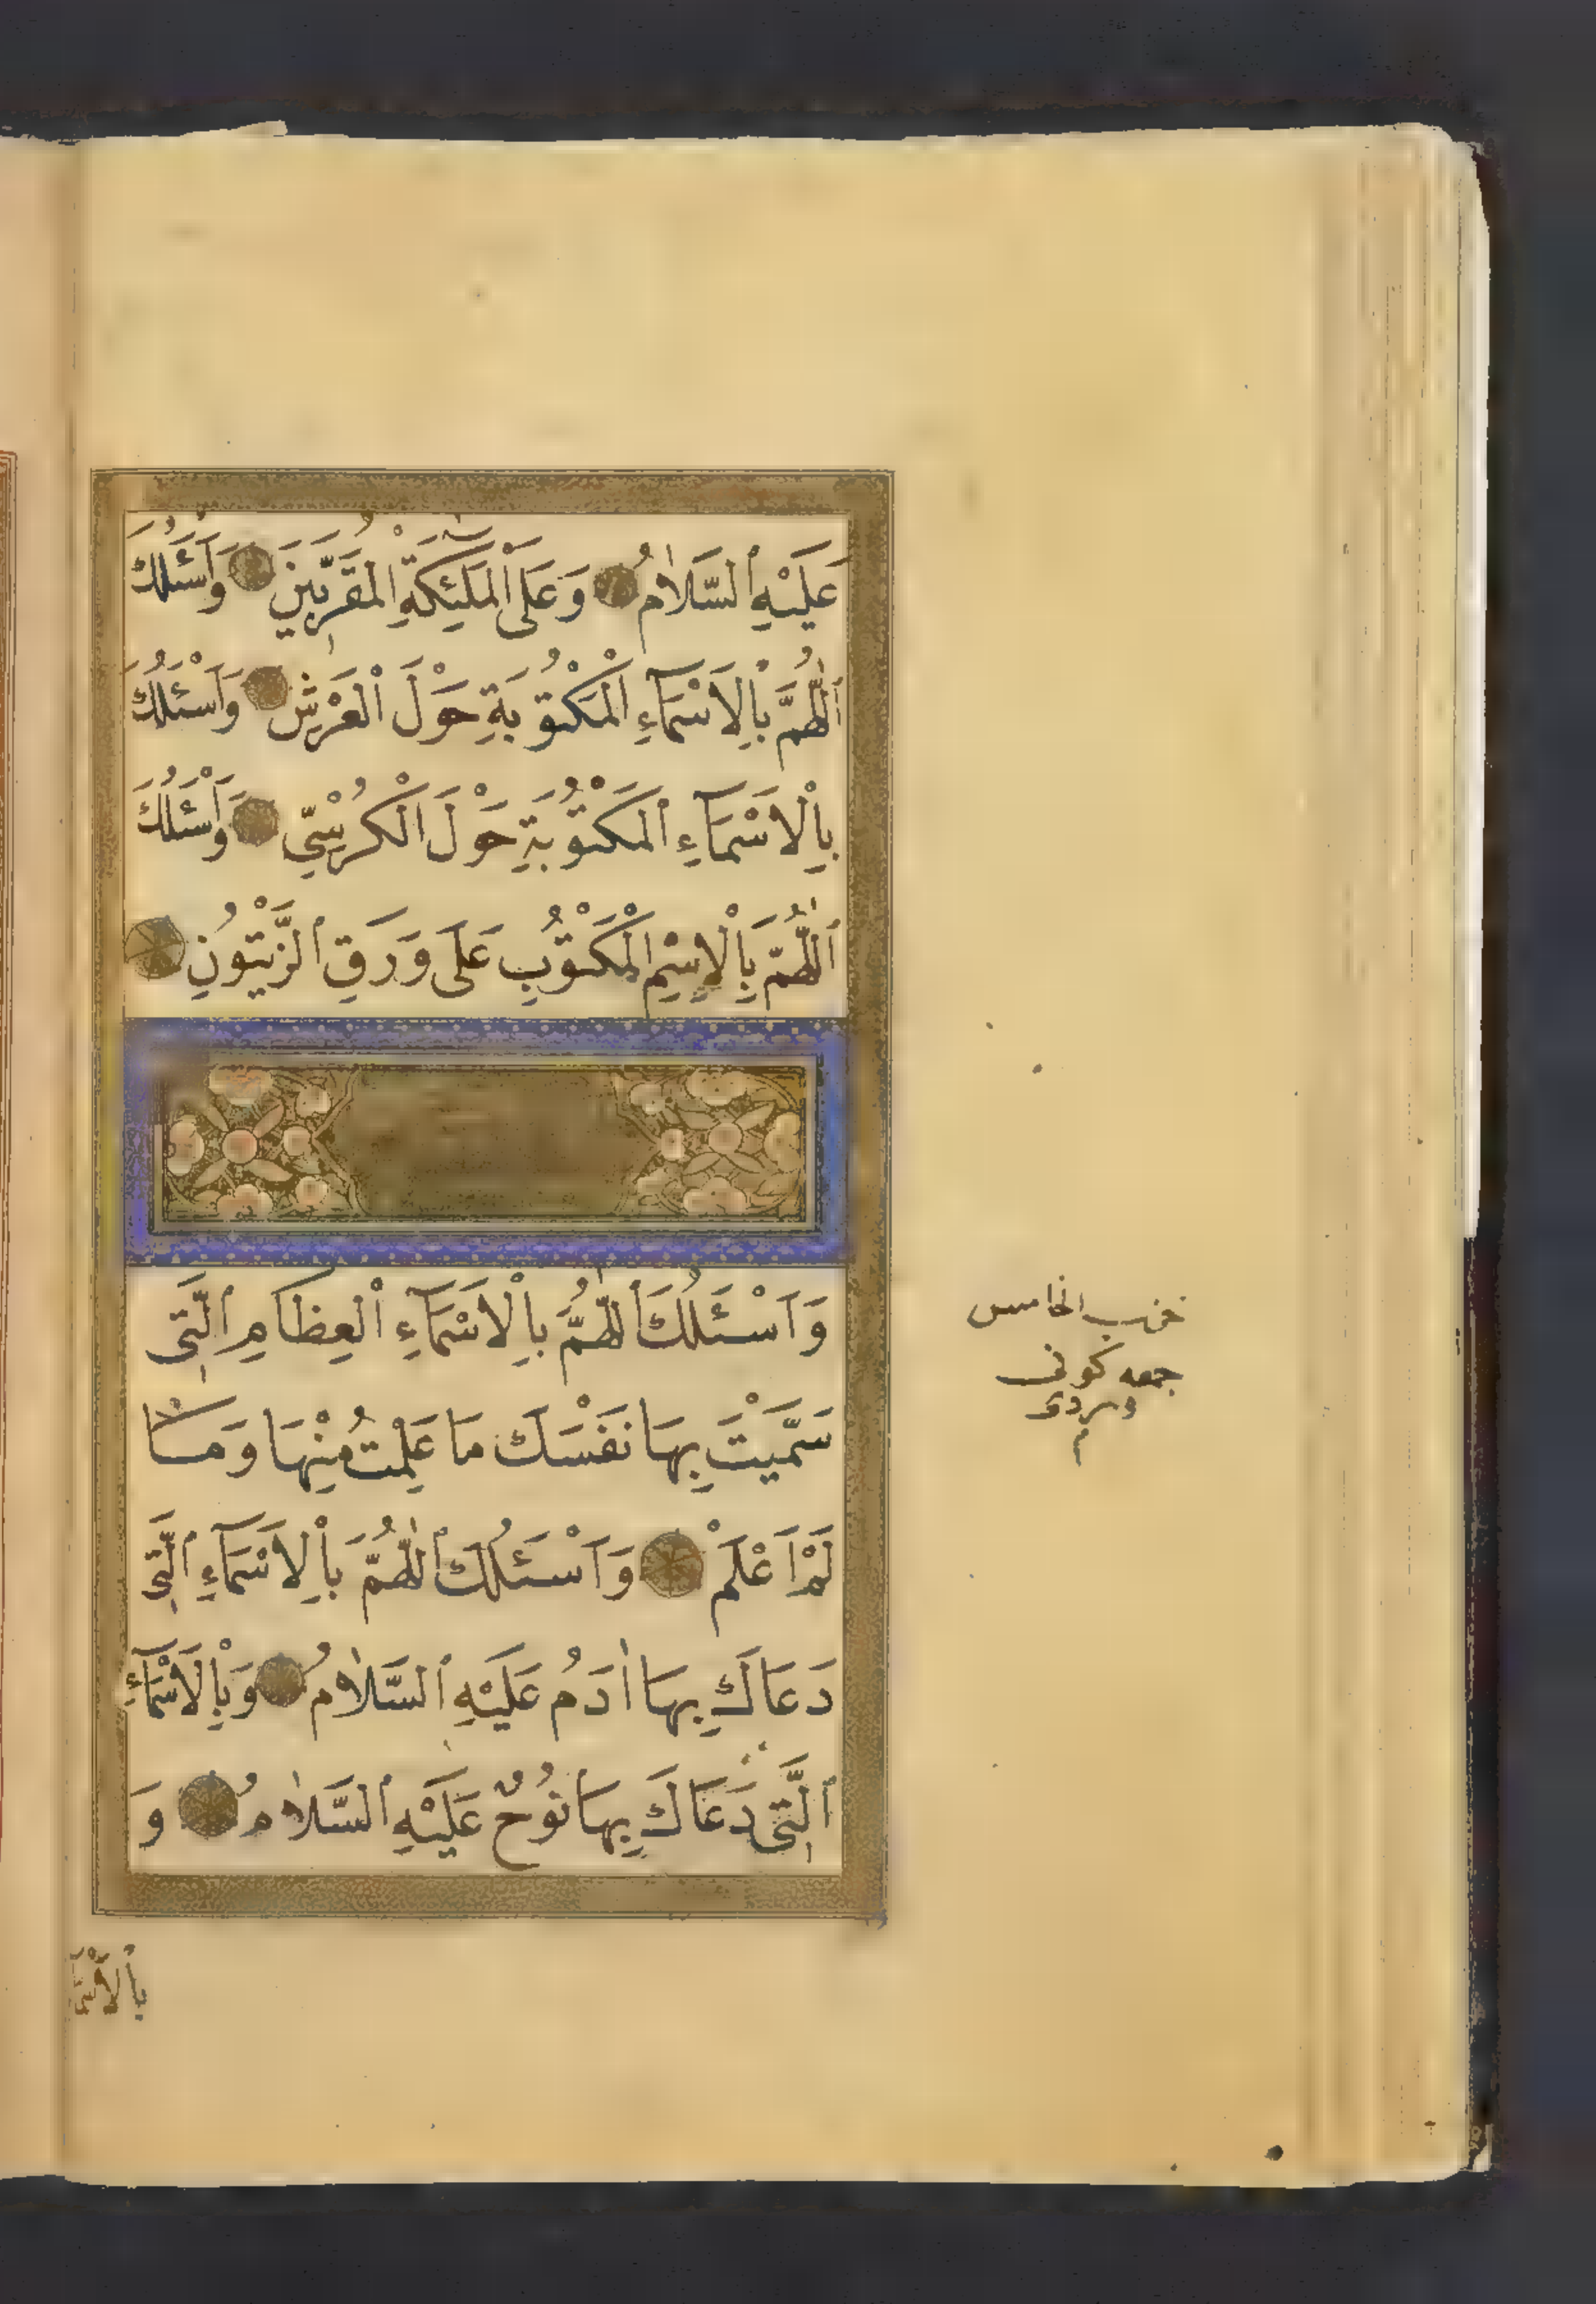 عَلَيْهِ ٱلسَّلَامُ وَعَلَى ٱلْمَلٰئِكَةِ الْمُقَرَّبِينَ وَاَسْئَلُكَ
اَللّٰهُمَّ بِاْلاَسْمَآءِ الْمَكْتُوبَةِ حَوْلَ الْعَرْشِ وَاَسْئَلُكَ
بِاْلاَسْمَآءِ الْمَكْتُوبَةِ حَوْلَ الْكُرْسِيِّ وَاَسْئَلُكَ
اَللّٰهُمَّ بِاْلاِسْمِ الْمَكْتُوبِ عَلَى وَرَقِ الزَّيْتُونِ
وَاَسْئَلُكَ اللّٰهُمَّ بِاْلاَسْمَآءِ الْعِظَامِ الَّتِى
سَمَّيْتَ بِهَا نَفْسَكَ مَا عَلِمْتُ مِنْهَا وَمَا
لَمْ اَعْلَمْ وَاَسْئَلُكَ اللّٰهُمَّ بِاْلاَسْمَآءِ الَّتِى
دَعَاكَ بِهَا اٰدَمُ عَلَيْهِ السَّلَامُ وَبِاْلاَسْمَآءِ
الَّتِى دَعَاكَ بِهَا نُوحٌ عَلَيْهِ السَّلَامُ وَ
بِاْلاَسْمَا
حزب الخامس
جمعه كونى
وردى
م